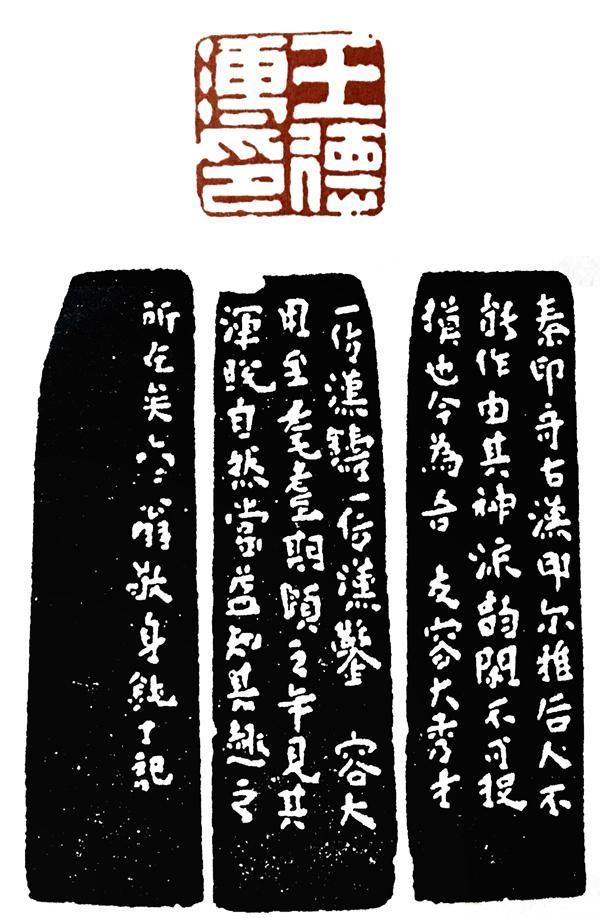 王德
溥印
秦印奇古漢印尔雅后人不
能作由其神流韵閑不可捉
摸也今為吾友容大秀才
一仿漢鑄一仿漢鑿容大
用至耄耋期頤之年見其
渾脫自然當益知其趣之
所在矣翁敬身鈍丁記